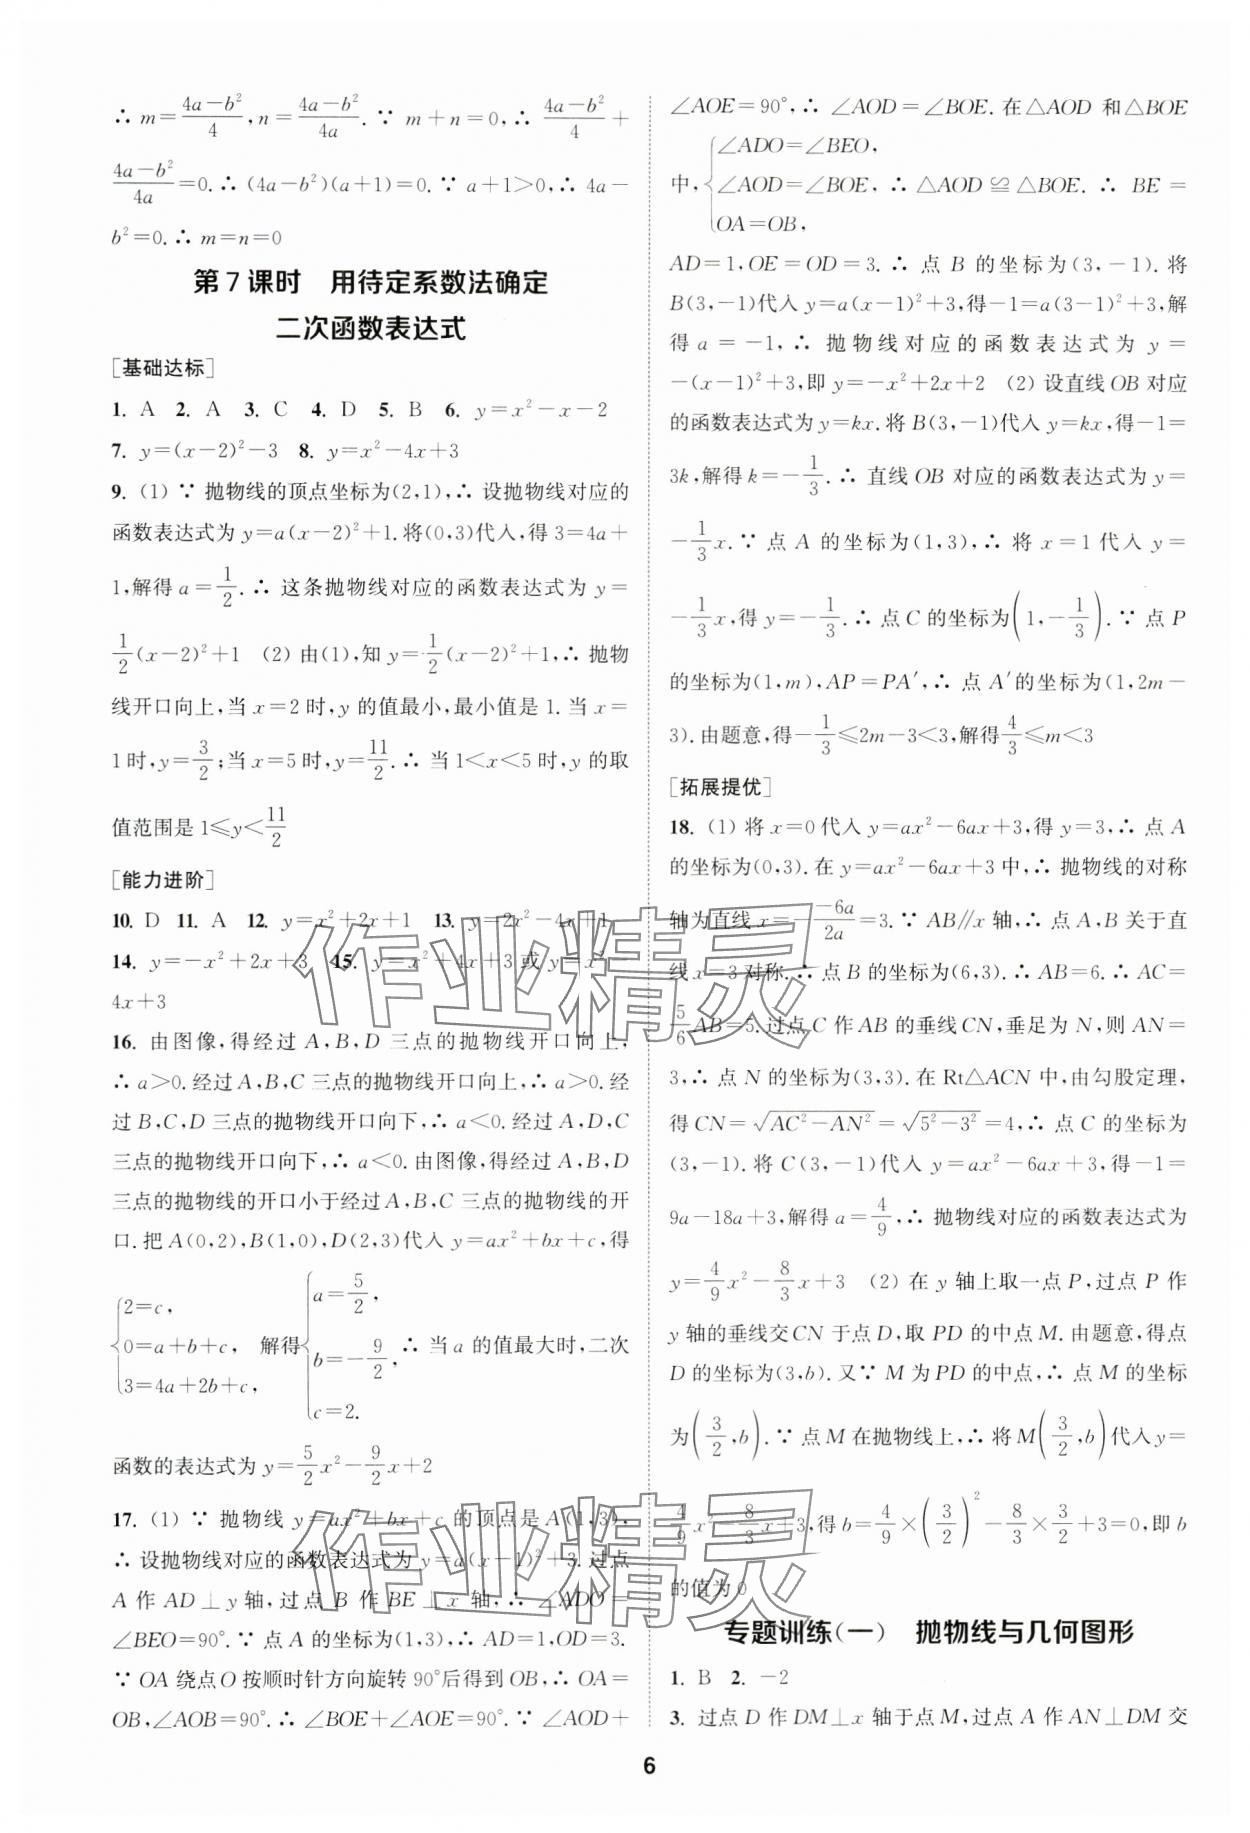 ∴ m=(4a-b²)/4, n=(4a-b²)/4a. ∵ m+n=0, ∴ (4a-b²)/4 +
(4a-b²)/4a=0. ∴ (4a-b²)(a+1)=0. ∵ a+1>0, ∴ 4a-
b²=0. ∴ m=n=0
第7课时 用待定系数法确定
二次函数表达式
[基础达标]
1. A 2. A 3. C 4. D 5. B 6. y=x²-x-2
7. y=(x-2)²-3 8. y=x²-4x+3
9. (1) ∵ 抛物线的顶点坐标为(2,1), ∴ 设抛物线对应的
函数表达式为 y=a(x-2)²+1. 将(0,3)代入,得 3=4a+
1,解得 a=1/2. ∴ 这条抛物线对应的函数表达式为 y=
1/2(x-2)²+1 (2) 由(1),知 y=1/2(x-2)²+1, ∴ 抛物
线开口向上,当 x=2 时,y 的值最小,最小值是 1. 当 x=
1 时,y=3/2;当 x=5 时,y=11/2. ∴ 当 1<x<5 时,y 的取
值范围是 1≤y<11/2
[能力进阶]
10. D 11. A 12. y=x²+2x+1 13. y=2x²-4x+1
14. y=-x²+2x+3 15. y=x²+4x+3 或 y=x²-
4x+3
16. 由图像,得经过 A,B,D 三点的抛物线开口向上,
∴ a>0. 经过 A,B,C 三点的抛物线开口向上, ∴ a>0. 经
过 B,C,D 三点的抛物线开口向下, ∴ a<0. 经过 A,D,C
三点的抛物线开口向下, ∴ a<0. 由图像,得经过 A,B,D
三点的抛物线的开口小于经过 A,B,C 三点的抛物线的开
口. 把 A(0,2),B(1,0),D(2,3)代入 y=ax²+bx+c,得
{2=c, 0=a+b+c, 3=4a+2b+c, 解得 {a=5/2, b=-9/2, c=2. ∴ 当 a 的值最大时,二次
函数的表达式为 y=5/2x²-9/2x+2
17. (1) ∵ 抛物线 y=ax²+bx+c 的顶点是 A(1,3),
∴ 设抛物线对应的函数表达式为 y=a(x-1)²+3. 过点
A 作 AD⊥y 轴,过点 B 作 BE⊥x 轴, ∴ ∠ADO=
∠BEO=90°. ∵ 点 A 的坐标为(1,3), ∴ AD=1,OD=3.
∵ OA 绕点 O 按顺时针方向旋转 90°后得到 OB, ∴ OA=
OB,∠AOB=90°. ∴ ∠BOE+∠AOE=90°. ∵ ∠AOD+
∠AOE=90°, ∴ ∠AOD=∠BOE. 在△AOD 和△BOE
中, {∠ADO=∠BEO, ∠AOD=∠BOE, OA=OB, ∴ △AOD≌△BOE. ∴ BE=
AD=1,OE=OD=3. ∴ 点 B 的坐标为(3,-1). 将
B(3,-1)代入 y=a(x-1)²+3,得-1=a(3-1)²+3,解
得 a=-1, ∴ 抛物线对应的函数表达式为 y=
-(x-1)²+3,即 y=-x²+2x+2 (2) 设直线 OB 对应
的函数表达式为 y=kx. 将 B(3,-1)代入 y=kx,得-1=
3k,解得 k=-1/3. ∴ 直线 OB 对应的函数表达式为 y=
-1/3x. ∵ 点 A 的坐标为(1,3), ∴ 将 x=1 代入 y=
-1/3x,得 y=-1/3. ∴ 点 C 的坐标为(1,-1/3). ∵ 点 P
的坐标为(1,m),AP=PA′, ∴ 点 A′的坐标为(1,2m-
3). 由题意,得-1/3≤2m-3<3,解得4/3≤m<3
[拓展提优]
18. (1) 将 x=0 代入 y=ax²-6ax+3,得 y=3, ∴ 点 A
的坐标为(0,3). 在 y=ax²-6ax+3 中, ∴ 抛物线的对称
轴为直线 x=-(-6a)/2a=3. ∵ AB∥x 轴, ∴ 点 A,B 关于直
线 x=3 对称. ∴ 点 B 的坐标为(6,3). ∴ AB=6. ∴ AC=
5/6AB=5. 过点 C 作 AB 的垂线 CN,垂足为 N,则 AN=
3, ∴ 点 N 的坐标为(3,3). 在 Rt△ACN 中,由勾股定理,
得 CN=√(AC²-AN²)=√(5²-3²)=4, ∴ 点 C 的坐标为
(3,-1). 将 C(3,-1)代入 y=ax²-6ax+3,得-1=
9a-18a+3,解得 a=4/9, ∴ 抛物线对应的函数表达式为
y=4/9x²-8/3x+3 (2) 在 y 轴上取一点 P,过点 P 作
y 轴的垂线交 CN 于点 D,取 PD 的中点 M. 由题意,得点
D 的坐标为(3,b). 又∵ M 为 PD 的中点, ∴ 点 M 的坐标
为(3/2,b). ∵ 点 M 在抛物线上, ∴ 将 M(3/2,b)代入 y=
4/9x²-8/3x+3,得 b=4/9×(3/2)²-8/3×3/2+3=0,即 b
的值为 0
专题训练(一) 抛物线与几何图形
1. B 2. -2
3. 过点 D 作 DM⊥x 轴于点 M,过点 A 作 AN⊥DM 交
6
作业精灵
作业精灵